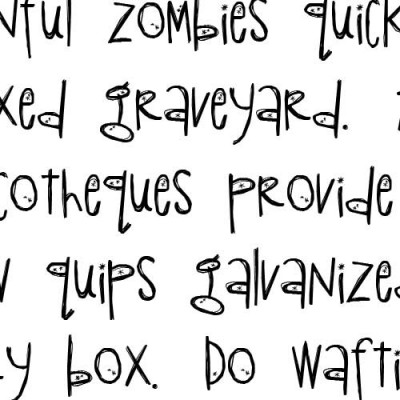 nful zombies quick
xed graveyard. 
cotheques provide
w quips galvanized
y box. Do wafti